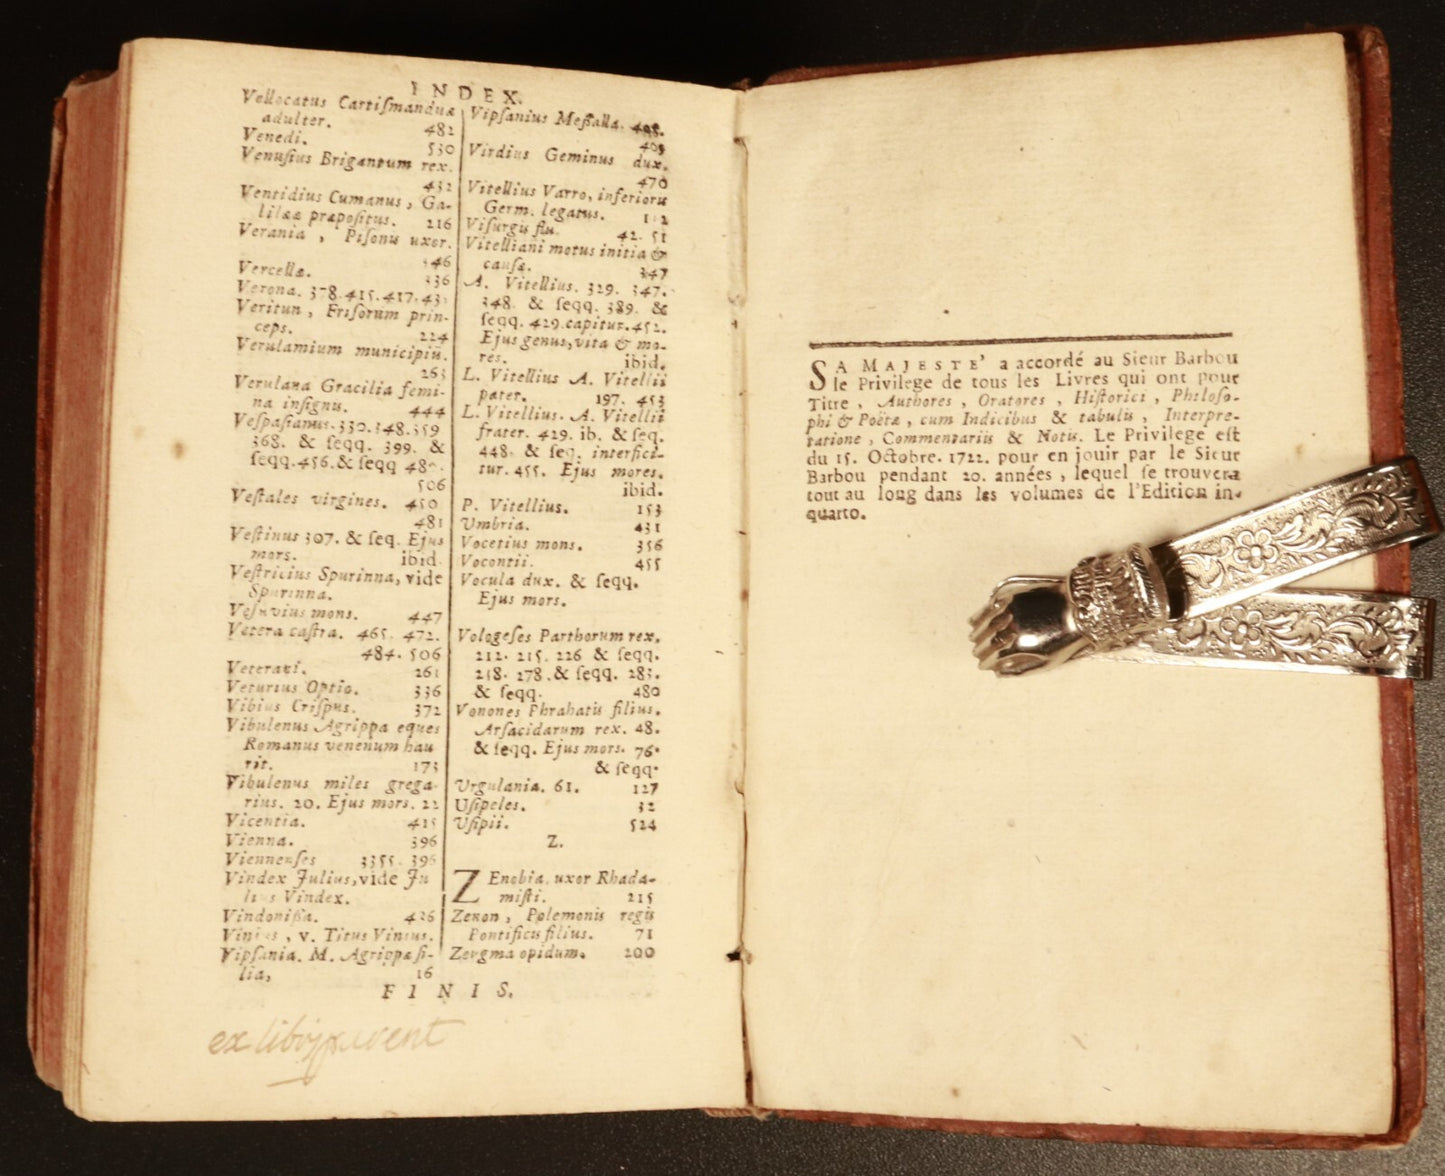 INDEX.
Vellocatus Cartiſmanduæ
adulter. 482
Venedi. 530
Venuſius Brigantum rex.
432
Ventidius Cumanus, Ga-
lilææ præpoſitus. 216
Verania, Piſonis uxor.
346
Vercellæ. 336
Verona. 378. 415. 417. 43
Veritun, Friſorum prin-
ceps. 224
Verulamium municipiū.
263
Verulana Gracilia femi-
na inſignis. 444
Veſpaſianus. 330. 348. 359
368. & ſeqq. 399. &
ſeqq. 456. & ſeqq 48
506
Veſtales virgines. 450
481
Veſtinus 307. & ſeq. Ejus
mors. ibid.
Veſtricius Spurinna, vide
Spurinna.
Veſuvius mons. 447
Vetera caſtra. 465. 472.
484. 506
Veterani. 261
Veturius Optio. 336
Vibius Criſpus. 372
Vibulenus Agrippa eques
Romanus venenum hau
rit. 173
Vibulenus miles grega-
rius. 20. Ejus mors. 22
Vicentia. 415
Vienna. 396
Viennenſes 3355. 396
Vindex Julius, vide Ju
lius Vindex.
Vindoniſſa. 426
Vinius, v. Titus Vinius.
Vipſania. M. Agrippæ fi-
lia, 16
Vipſanius Meſſalla. 408.
409
Virdius Geminus dux.
470
Vitellius Varro, inferioris
Germ. legatus. 112
Viſurgis flu. 42. 51
Vitelliani motus initia &
cauſæ. 347
A. Vitellius. 329. 347.
348. & ſeqq. 389. &
ſeqq. 429. capitur. 452.
Ejus genus, vita & mo-
res. ibid.
L. Vitellius A. Vitellii
pater. 197. 453
L. Vitellius. A. Vitellii
frater. 429. ib. & ſeq.
448. & ſeq. interfici-
tur. 455. Ejus mores.
ibid.
P. Vitellius. 153
Umbria. 431
Vocetius mons. 356
Vocontii. 455
Vocula dux. & ſeqq.
Ejus mors.
Vologeſes Parthorum rex.
212. 215. 226 & ſeqq.
258. 278. & ſeqq. 283.
& ſeqq. 480
Vonones Phrahatis filius.
Arſacidarum rex. 48.
& ſeqq. Ejus mors. 76.
& ſeqq.
Urgulania. 61. 127
Uſipeles. 32
Uſipii. 524
Z.
ZEnobia. uxor Rhada-
miſti. 215
Zenon, Polemonis regis
Pontificus filius. 71
Zeugma opidum. 200
FINIS.
ex
SA MAJESTE' a accordé au Sieur Barbou
le Privilege de tous les Livres qui ont pour
Titre, Authores, Oratores, Hiſtorici, Philoſo-
phi & Poëtæ, cum Indicibus & tabulis, Interpre-
tatione, Commentariis & Notis. Le Privilege eſt
du 15. Octobre. 1722. pour en jouir par le Sieur
Barbou pendant 20. années, lequel ſe trouvera
tout au long dans les volumes de l'Edition in-
quarto.